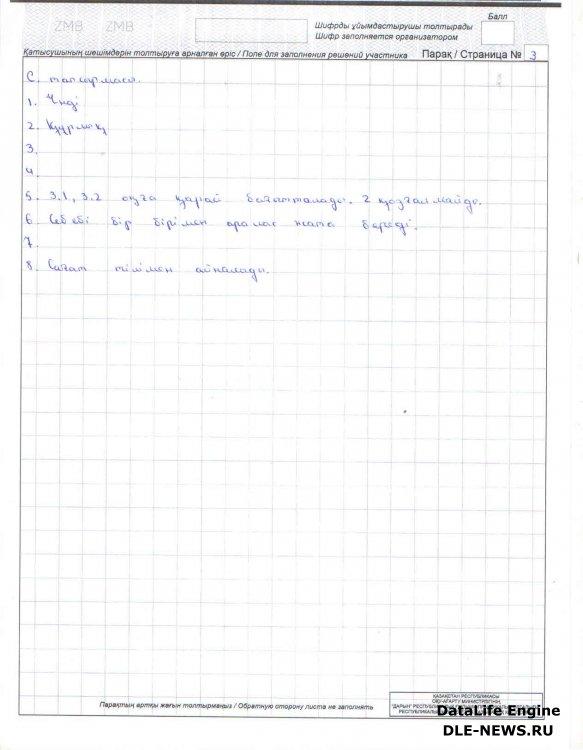 ZMB ZMB
Балл
Шифрды ұйымдастырушы толтырады
Шифр заполняется организатором
Қатысушының шешімдерін толтыруға арналған өріс / Поле для заполнения решений участника Парақ / Страница № 3
С. тапсырмасы.
1. Үнді
2. Құрлық
3.
4.
5. 3.1, 3.2 оңға қарай бағытталады. 2 қозғалмайды.
6. Себебі бір бірімен аралас жата береді.
7.
8. Сағат тілімен айналады.
Парақтың артқы жағын толтырмаңыз / Обратную сторону листа не заполнять
ҚАЗАҚСТАН РЕСПУБЛИКАСЫ
ОҚУ-АҒАРТУ МИНИСТРЛІГІНІҢ
"ДАРЫН" РЕСПУБЛИКАЛЫҚ
DataLife Engine
DLE-NEWS.RU